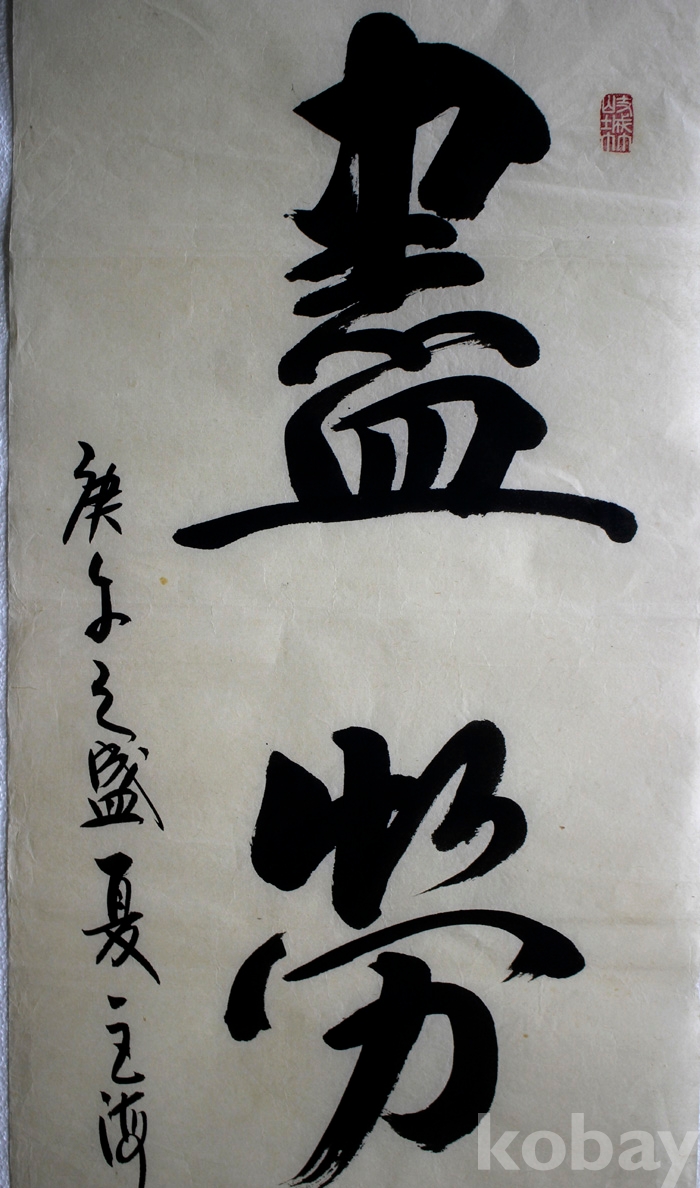 盡勞
庚午之盛夏
kobay